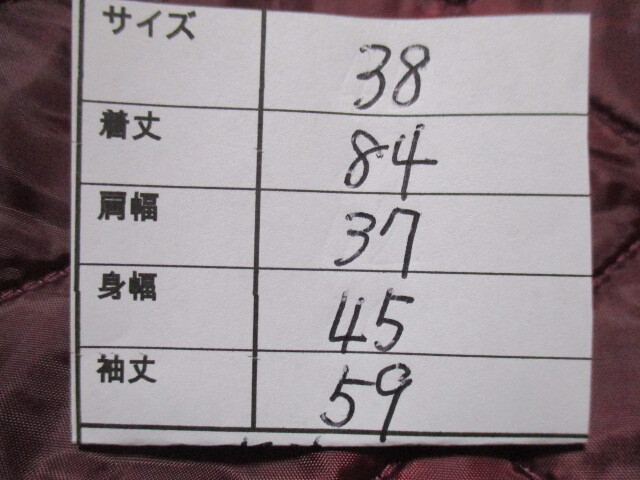 サイズ 38
着丈 84
肩幅 37
身幅 45
袖丈 59